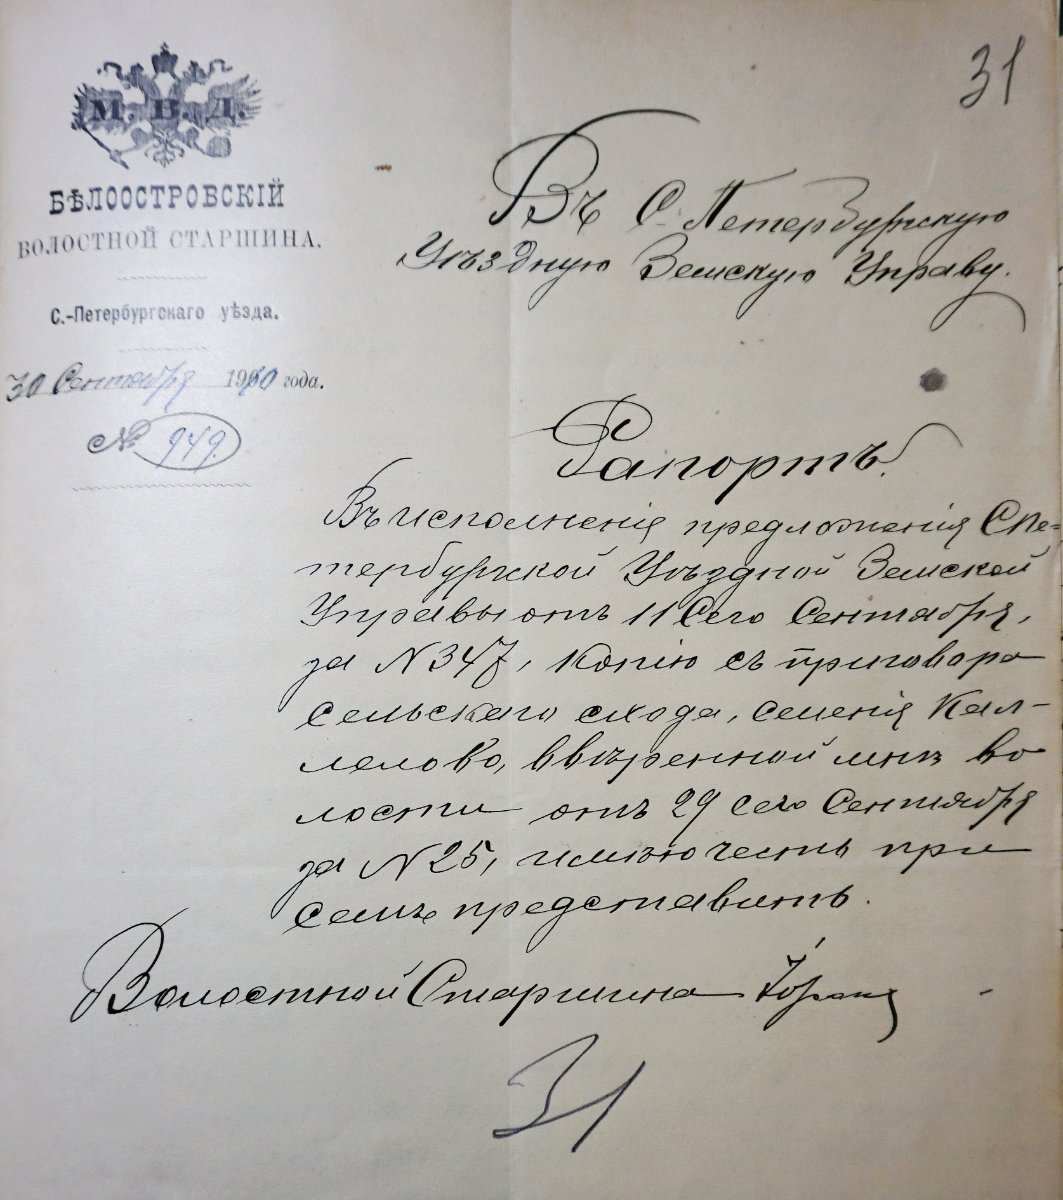 31
М. В. Д.
БѢЛООСТРОВСКІЙ
ВОЛОСТНОЙ СТАРШИНА.
С.-Петербургскаго уѣзда.
30 Сентября 1910 года.
№ 949.
Въ С. Петербургскую
Уѣздную Земскую Управу.
Рапортъ.
Въ исполненія предложенія СПе=
тербургской Уѣздной Земской
Управы отъ 11 сего Сентября,
за N 347, копію съ приговора
сельскаго схода, селенія Кал-
лелово, ввѣренной мнѣ во
лости отъ 29 сего Сентября
за N 25, имѣю честь при
семъ представить.
Волостной Старшина
31